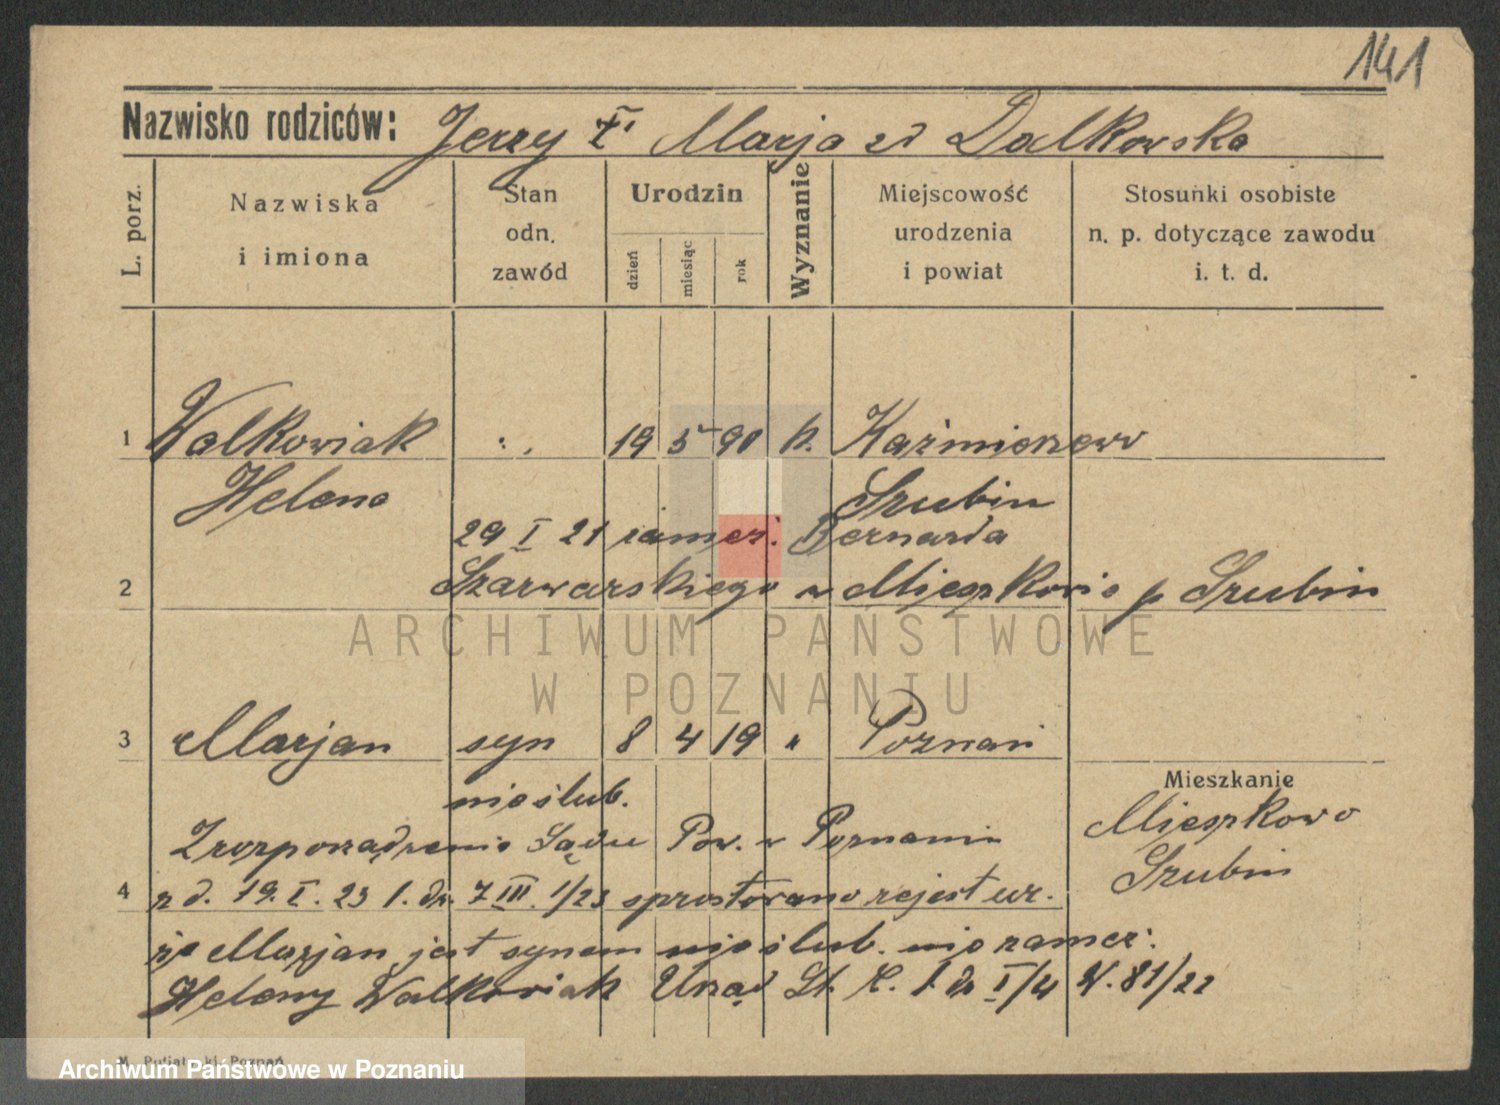 141
Nazwisko rodziców: Jerzy Marja zd Dalkowska
L. porz.
Nazwiska
i imiona
Stan
odn.
zawód
Urodzin
dzień
miesiąc
rok
Wyznanie
Miejscowość
urodzenia
i powiat
Stosunki osobiste
n. p. dotyczące zawodu
i. t. d.
1 Walkowiak 19 5 90 k. Kaźmierzewo
Helena Szubin
29 I 21 zamęż. Bernarda
2 Szarwarskiego w Mieszkowie p Szubin
ARCHIWUM PAŃSTWOWE
W POZNANIU
3 Marjan syn 8 4 19 " Poznań
nieślub.
Mieszkanie
Mieszkowo
Szubin
Z rozporządzenia Sądu Pow. w Poznaniu
4 z d. 19. I. 23 l. dz. 7 III. 1/23 sprostowano rejest ur.
że Marjan jest synem nieślub. niezamęż.
Heleny Walkowiak Urząd St. C. l. dz I/4 N. 81/22
Poznań
Archiwum Państwowe w Poznaniu